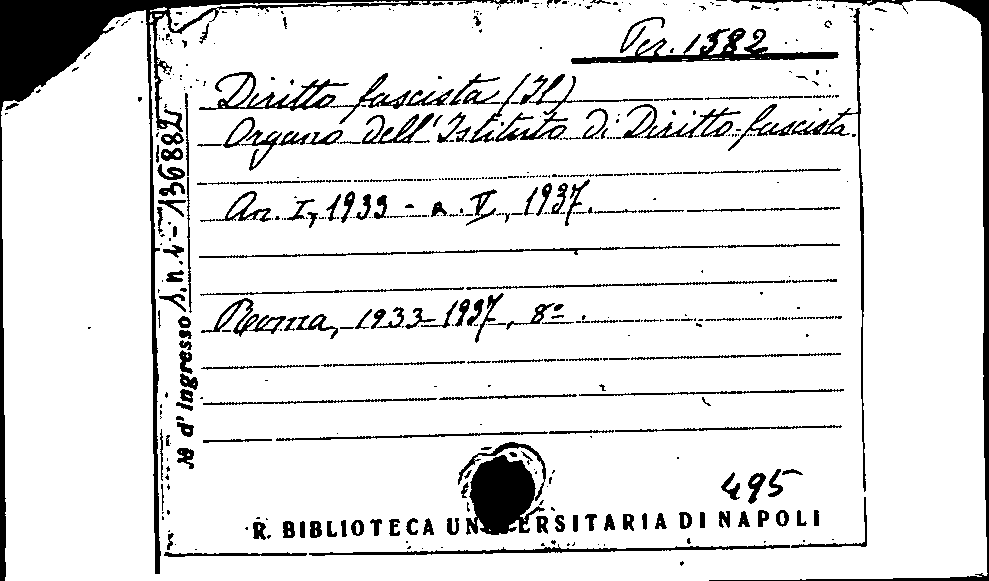 Per. 1582
Diritto fascista (Il)
Organo dell'Istituto di Diritto fascista.
An. I, 1933 - a. V, 1937.
Roma, 1933-1937, 8º.
495
R. BIBLIOTECA UNIVERSITARIA DI NAPOLI
Nº d'ingresso S. n. 1 - 136882